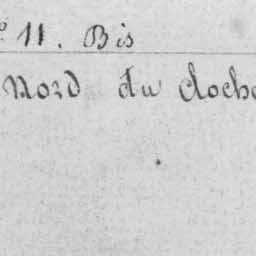 º 11. Bis
Nord du cloche